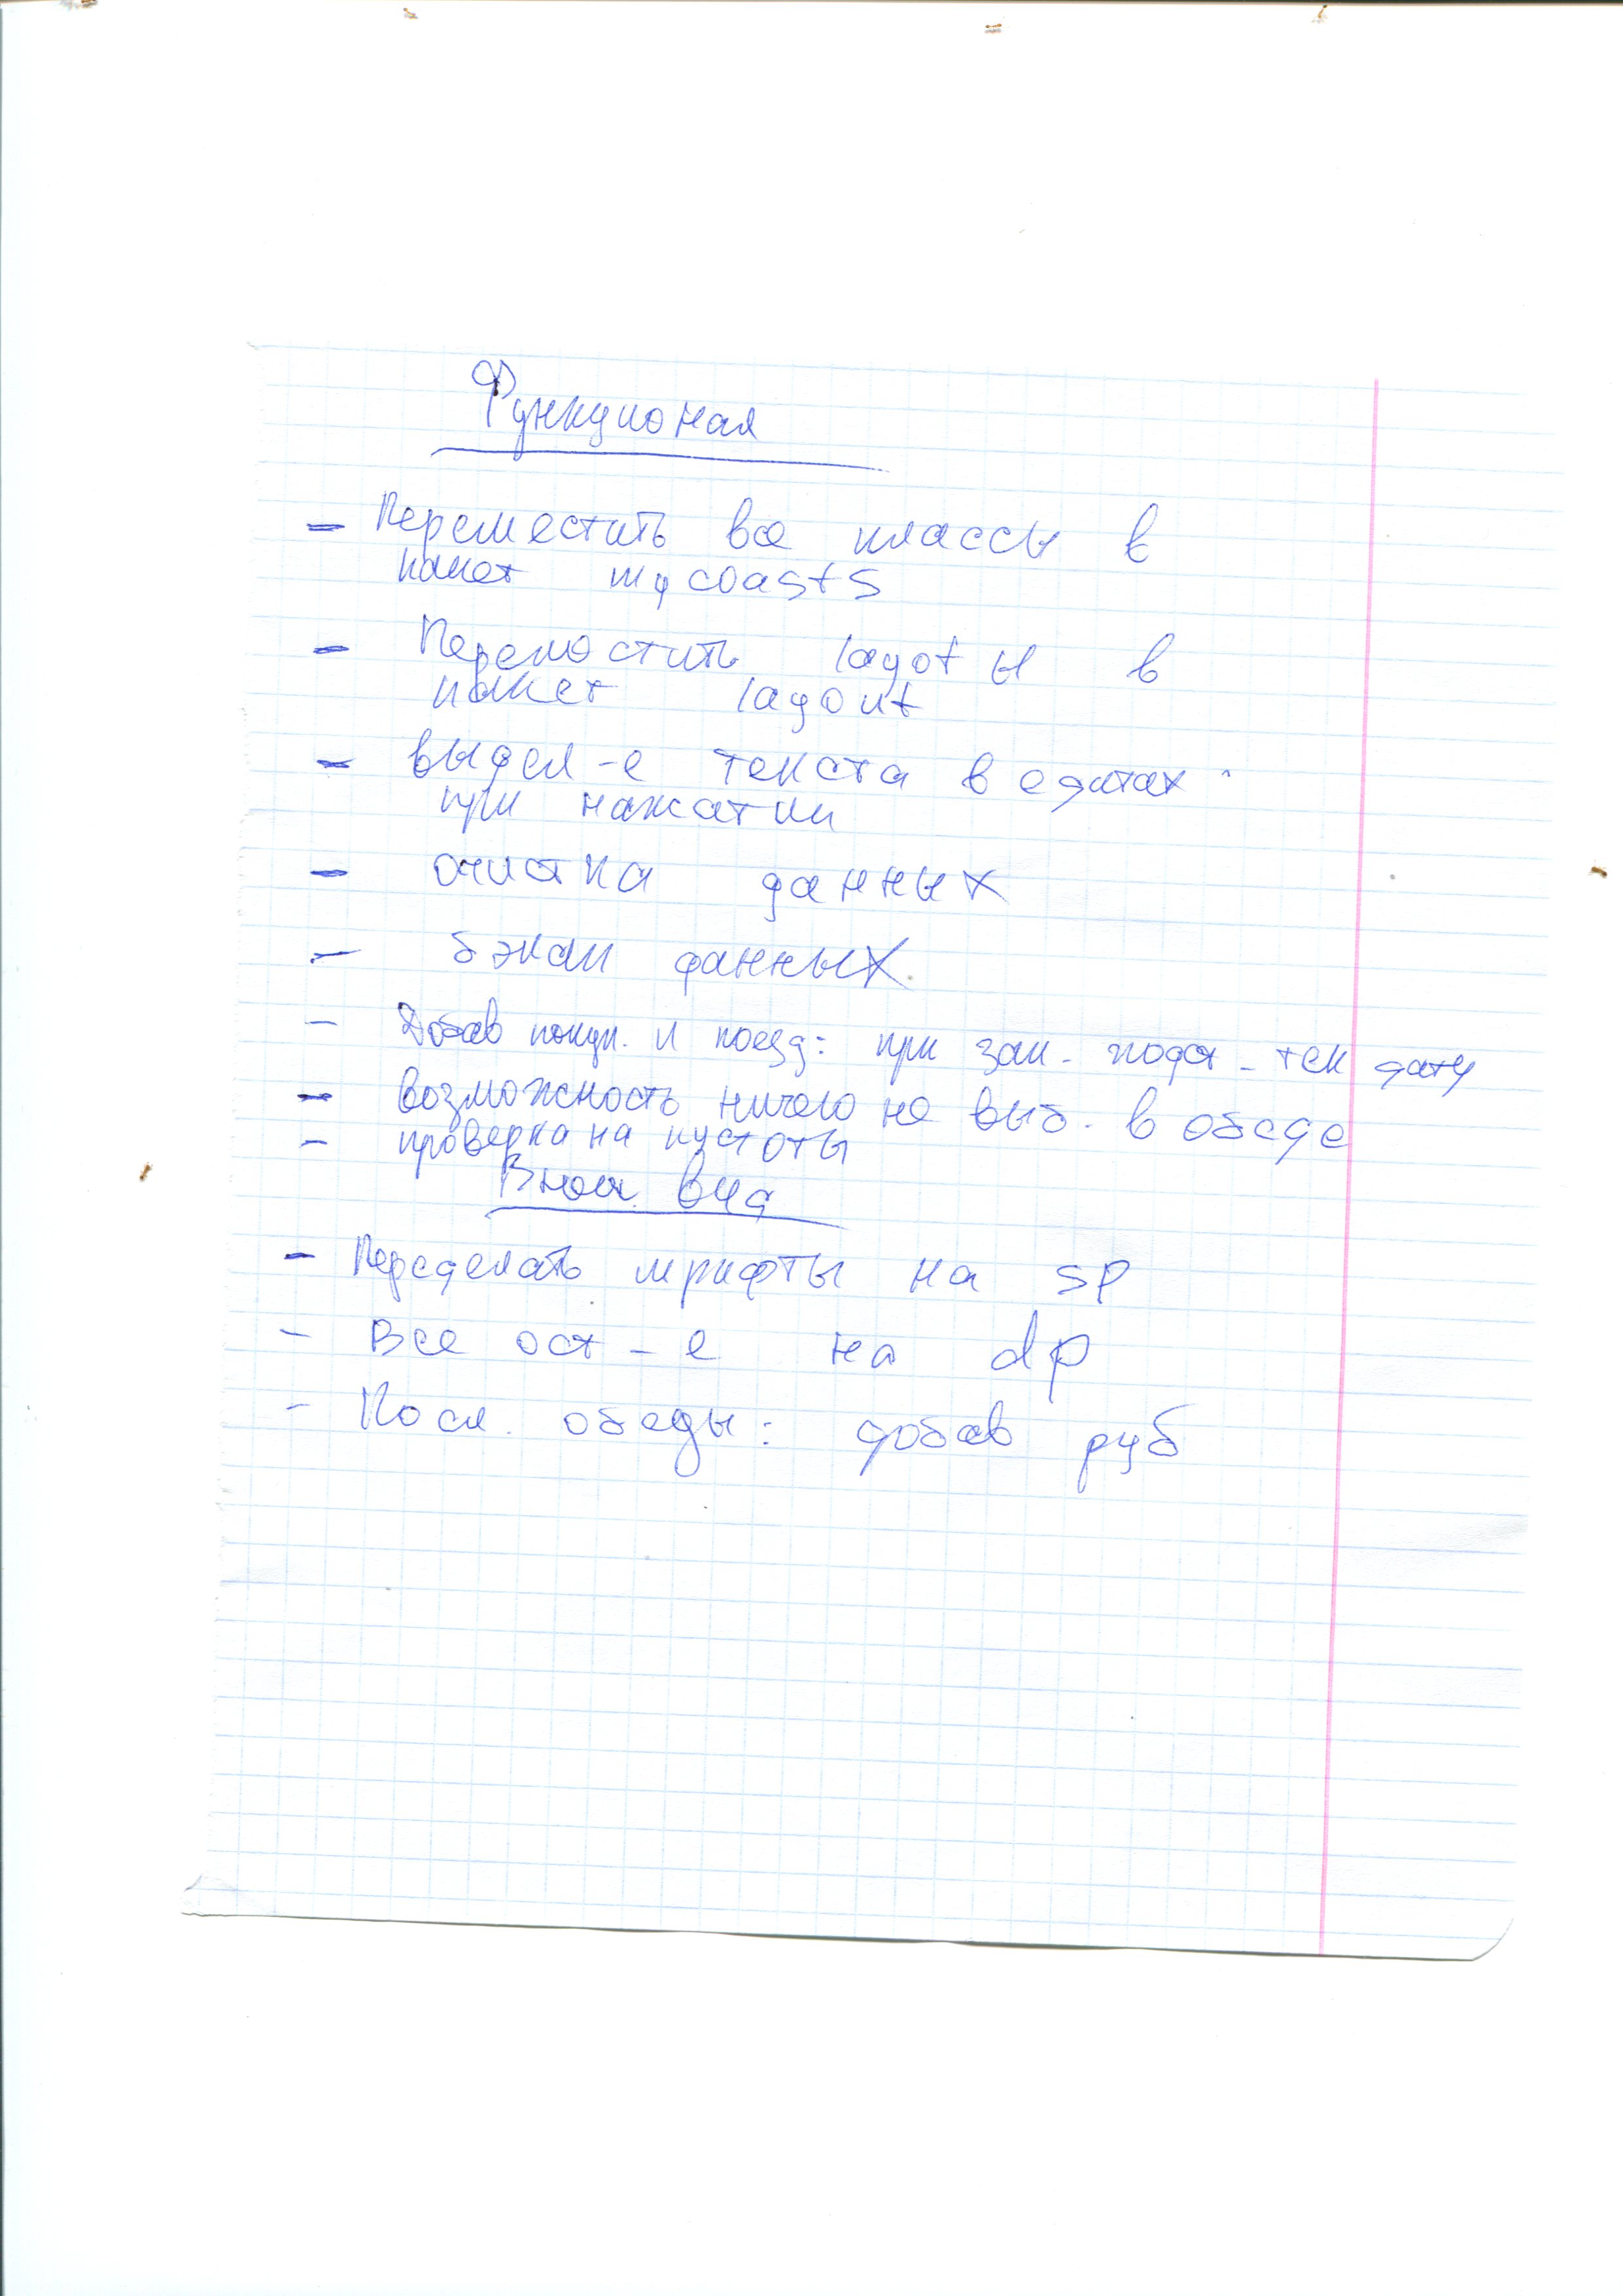 Функционал
- Переместить все классы в
пакет mycoasts
- Переместить layotы в
пакет layout
- выдел-е текста в едитах
при нажатии
- очистка данных
- бэкап данных
- Добав покуп. и поезд: при зап. подст. тек дату
- возможность ничего не выб. в обеде
- проверка на пустоты
Внеш. вид
- Переделать шрифты на sp
- Все ост-е на dp
- Посл. обеды: добав руб